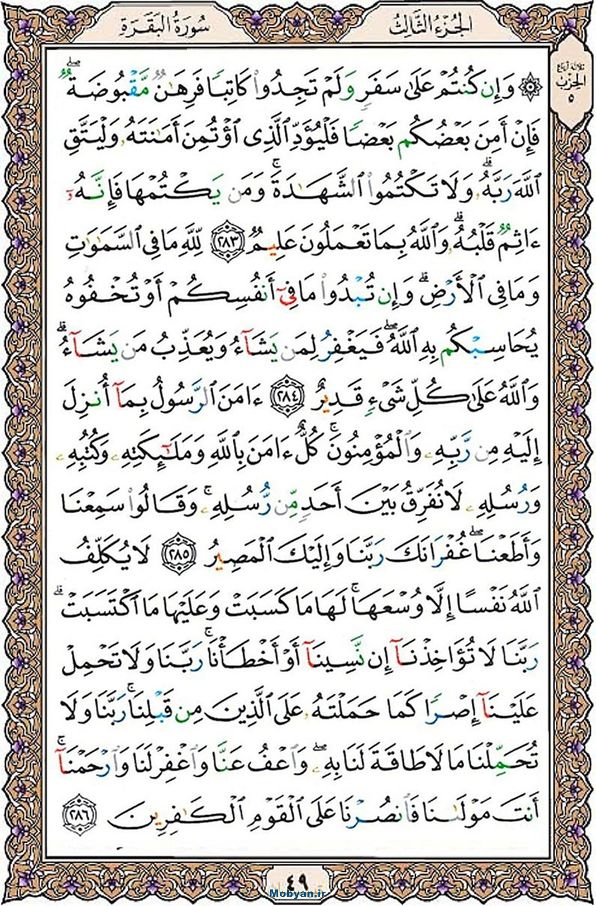 الجُزءُ الثَّالِثُ
سُورَةُ البَقَرَةِ
ثلاثة أرباع
الحِزْب
٥
۞ وَإِن كُنتُمْ عَلَىٰ سَفَرٍ وَلَمْ تَجِدُوا۟ كَاتِبًا فَرِهَٰنٌ مَّقْبُوضَةٌ ۖ
فَإِنْ أَمِنَ بَعْضُكُم بَعْضًا فَلْيُؤَدِّ ٱلَّذِى ٱؤْتُمِنَ أَمَٰنَتَهُۥ وَلْيَتَّقِ
ٱللَّهَ رَبَّهُۥ ۗ وَلَا تَكْتُمُوا۟ ٱلشَّهَٰدَةَ ۚ وَمَن يَكْتُمْهَا فَإِنَّهُۥٓ
ءَاثِمٌ قَلْبُهُۥ ۗ وَٱللَّهُ بِمَا تَعْمَلُونَ عَلِيمٌ ﴿٢٨٣﴾ لِّلَّهِ مَا فِى ٱلسَّمَٰوَٰتِ
وَمَا فِى ٱلْأَرْضِ ۗ وَإِن تُبْدُوا۟ مَا فِىٓ أَنفُسِكُمْ أَوْ تُخْفُوهُ
يُحَاسِبْكُم بِهِ ٱللَّهُ ۖ فَيَغْفِرُ لِمَن يَشَآءُ وَيُعَذِّبُ مَن يَشَآءُ ۗ
وَٱللَّهُ عَلَىٰ كُلِّ شَىْءٍ قَدِيرٌ ﴿٢٨٤﴾ ءَامَنَ ٱلرَّسُولُ بِمَآ أُنزِلَ
إِلَيْهِ مِن رَّبِّهِۦ وَٱلْمُؤْمِنُونَ ۚ كُلٌّ ءَامَنَ بِٱللَّهِ وَمَلَٰٓئِكَتِهِۦ وَكُتُبِهِۦ
وَرُسُلِهِۦ لَا نُفَرِّقُ بَيْنَ أَحَدٍ مِّن رُّسُلِهِۦ ۚ وَقَالُوا۟ سَمِعْنَا
وَأَطَعْنَا ۖ غُفْرَانَكَ رَبَّنَا وَإِلَيْكَ ٱلْمَصِيرُ ﴿٢٨٥﴾ لَا يُكَلِّفُ
ٱللَّهُ نَفْسًا إِلَّا وُسْعَهَا ۚ لَهَا مَا كَسَبَتْ وَعَلَيْهَا مَا ٱكْتَسَبَتْ ۗ
رَبَّنَا لَا تُؤَاخِذْنَآ إِن نَّسِينَآ أَوْ أَخْطَأْنَا ۚ رَبَّنَا وَلَا تَحْمِلْ
عَلَيْنَآ إِصْرًا كَمَا حَمَلْتَهُۥ عَلَى ٱلَّذِينَ مِن قَبْلِنَا ۚ رَبَّنَا وَلَا
تُحَمِّلْنَا مَا لَا طَاقَةَ لَنَا بِهِۦ ۖ وَٱعْفُ عَنَّا وَٱغْفِرْ لَنَا وَٱرْحَمْنَآ ۚ
أَنتَ مَوْلَىٰنَا فَٱنصُرْنَا عَلَى ٱلْقَوْمِ ٱلْكَٰفِرِينَ ﴿٢٨٦﴾
٤٩
Mobyan.ir